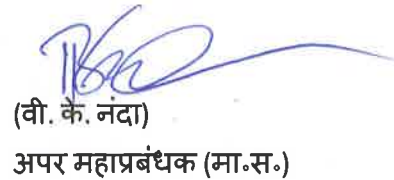 (वी. के. नंदा)
अपर महाप्रबंधक (मा॰स॰)